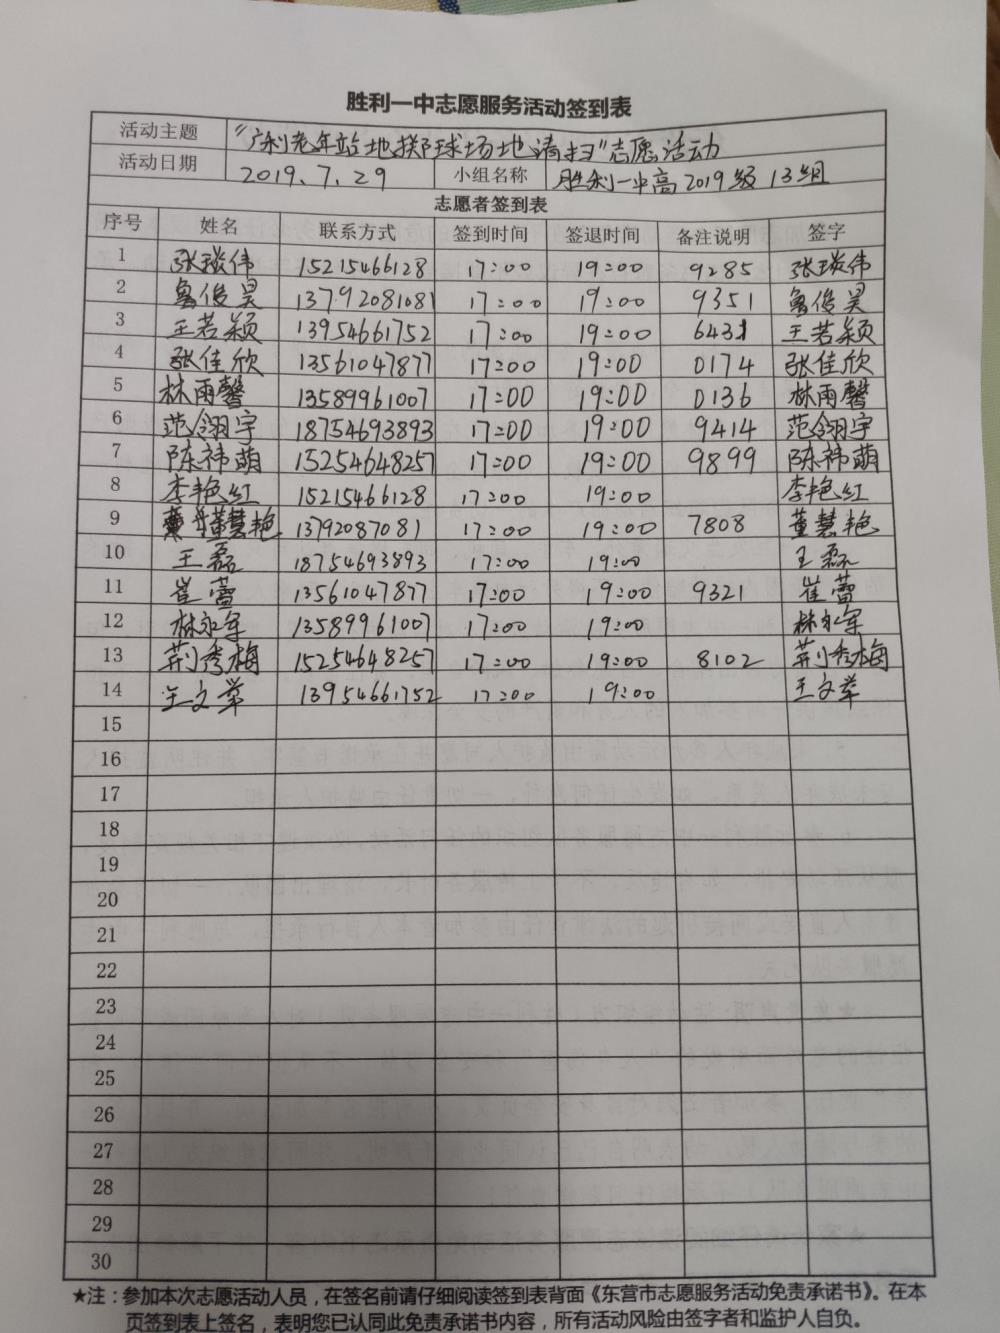 胜利一中志愿服务活动签到表
活动主题 "广利老年站地掷球场地清扫"志愿活动
活动日期 2019.7.29 小组名称 胜利一中高2019级13组
志愿者签到表
序号 姓名 联系方式 签到时间 签退时间 备注说明 签字
1 张琰伟 15215466128 17:00 19:00 9285 张琰伟
2 鲁俊昊 13792081081 17:00 19:00 9351 鲁俊昊
3 王若颖 13954661752 17:00 19:00 6431 王若颖
4 张佳欣 13561047877 17:00 19:00 0174 张佳欣
5 林雨馨 13589961007 17:00 19:00 0136 林雨馨
6 范翎宇 18754693893 17:00 19:00 9414 范翎宇
7 陈祎萌 15254648257 17:00 19:00 9899 陈祎萌
8 李艳红 15215466128 17:00 19:00 李艳红
9 董慧艳 13792087081 17:00 19:00 7808 董慧艳
10 王磊 18754693893 17:00 19:00 王磊
11 崔蕾 13561047877 17:00 19:00 9321 崔蕾
12 林永军 13589961007 17:00 19:00 林永军
13 荆秀梅 15254648257 17:00 19:00 8102 荆秀梅
14 王文举 13954661752 17:00 19:00 王文举
15
16
17
18
19
20
21
22
23
24
25
26
27
28
29
30
★注：参加本次志愿活动人员，在签名前请仔细阅读签到表背面《东营市志愿服务活动免责承诺书》。在本
页签到表上签名，表明您已认同此免责承诺书内容，所有活动风险由签字者和监护人自负。